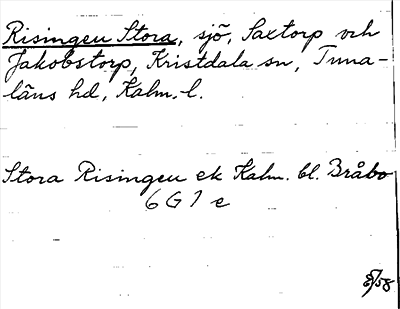 Risingen Stora, sjö, Saxtorp och
Jakobstorp, Kristdala sn, Tuna-
läns hd, Kalm. l.
Stora Risingen ek Kalm. bl. Bråbo
6 G 1 e
/58